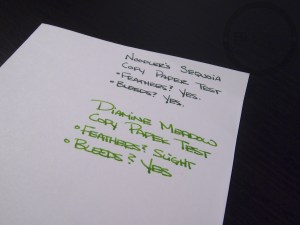 Noodler's Sequoia
Copy Paper Test
• Feathers? Yes.
• Bleeds? Yes.
Diamine Meadow
Copy Paper Test
• Feathers? Slight
• Bleeds? Yes